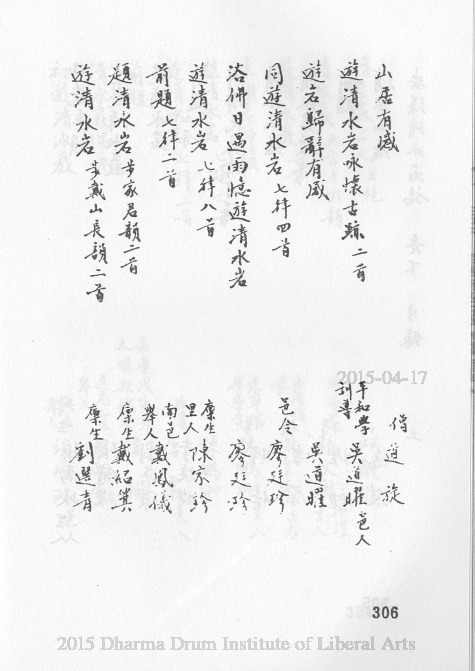 山居有感
僧道旋
遊清水岩咏懷古蹟二首
平和學
訓導
吳道曜邑人
遊岩歸辭有感
吳道曜
同遊清水岩七律四首
邑令廖廷珍
浴佛日遇雨憶遊清水岩
廖廷珍
遊清水岩七律八首
廩生
里人
陳家珍
前題七律二首
南邑
舉人
戴鳳儀
題清水岩步家君韻二首
廩生戴紹箕
遊清水岩步戴山長韻二首
廩生劉選青
2015-04-17
306
2015 Dharma Drum Institute of Liberal Arts